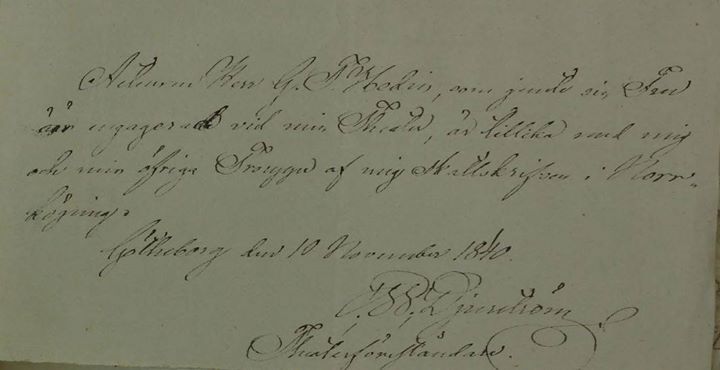 Acteuren Herr G. F. Hedin, som jemte sin Fru
är engagerade vid min Theater, är tillika med mig
och min öfriga Trouppe af mig skattskrifven i Norr-
köping.
Götheborg den 10 November 1840.
Djurström
Theaterföreståndare.